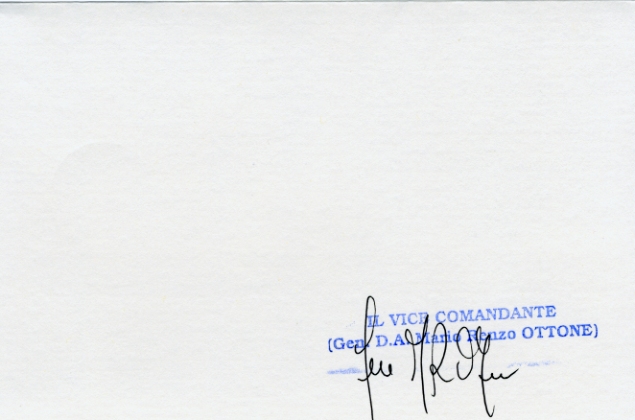 IL VICE COMANDANTE
(Gen. D.A. Mario Renzo OTTONE)